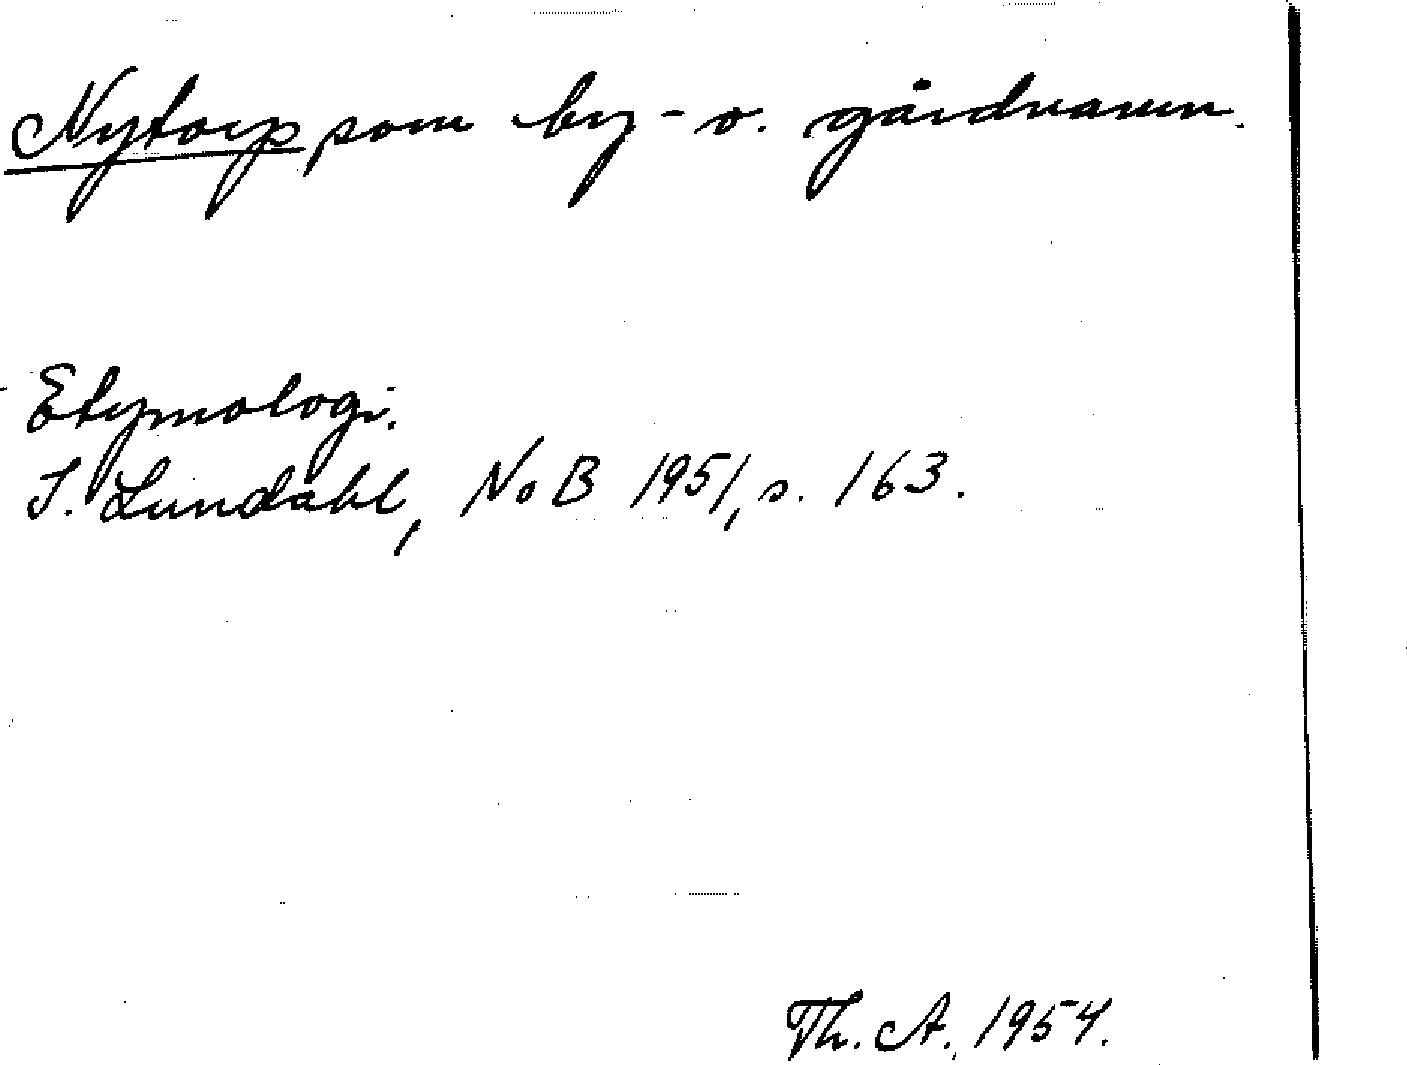 Nytorp som by- o. gårdnamn.
Etymologi.
I. Lundahl, NoB 1951, s. 163.
Th. A. 1954.